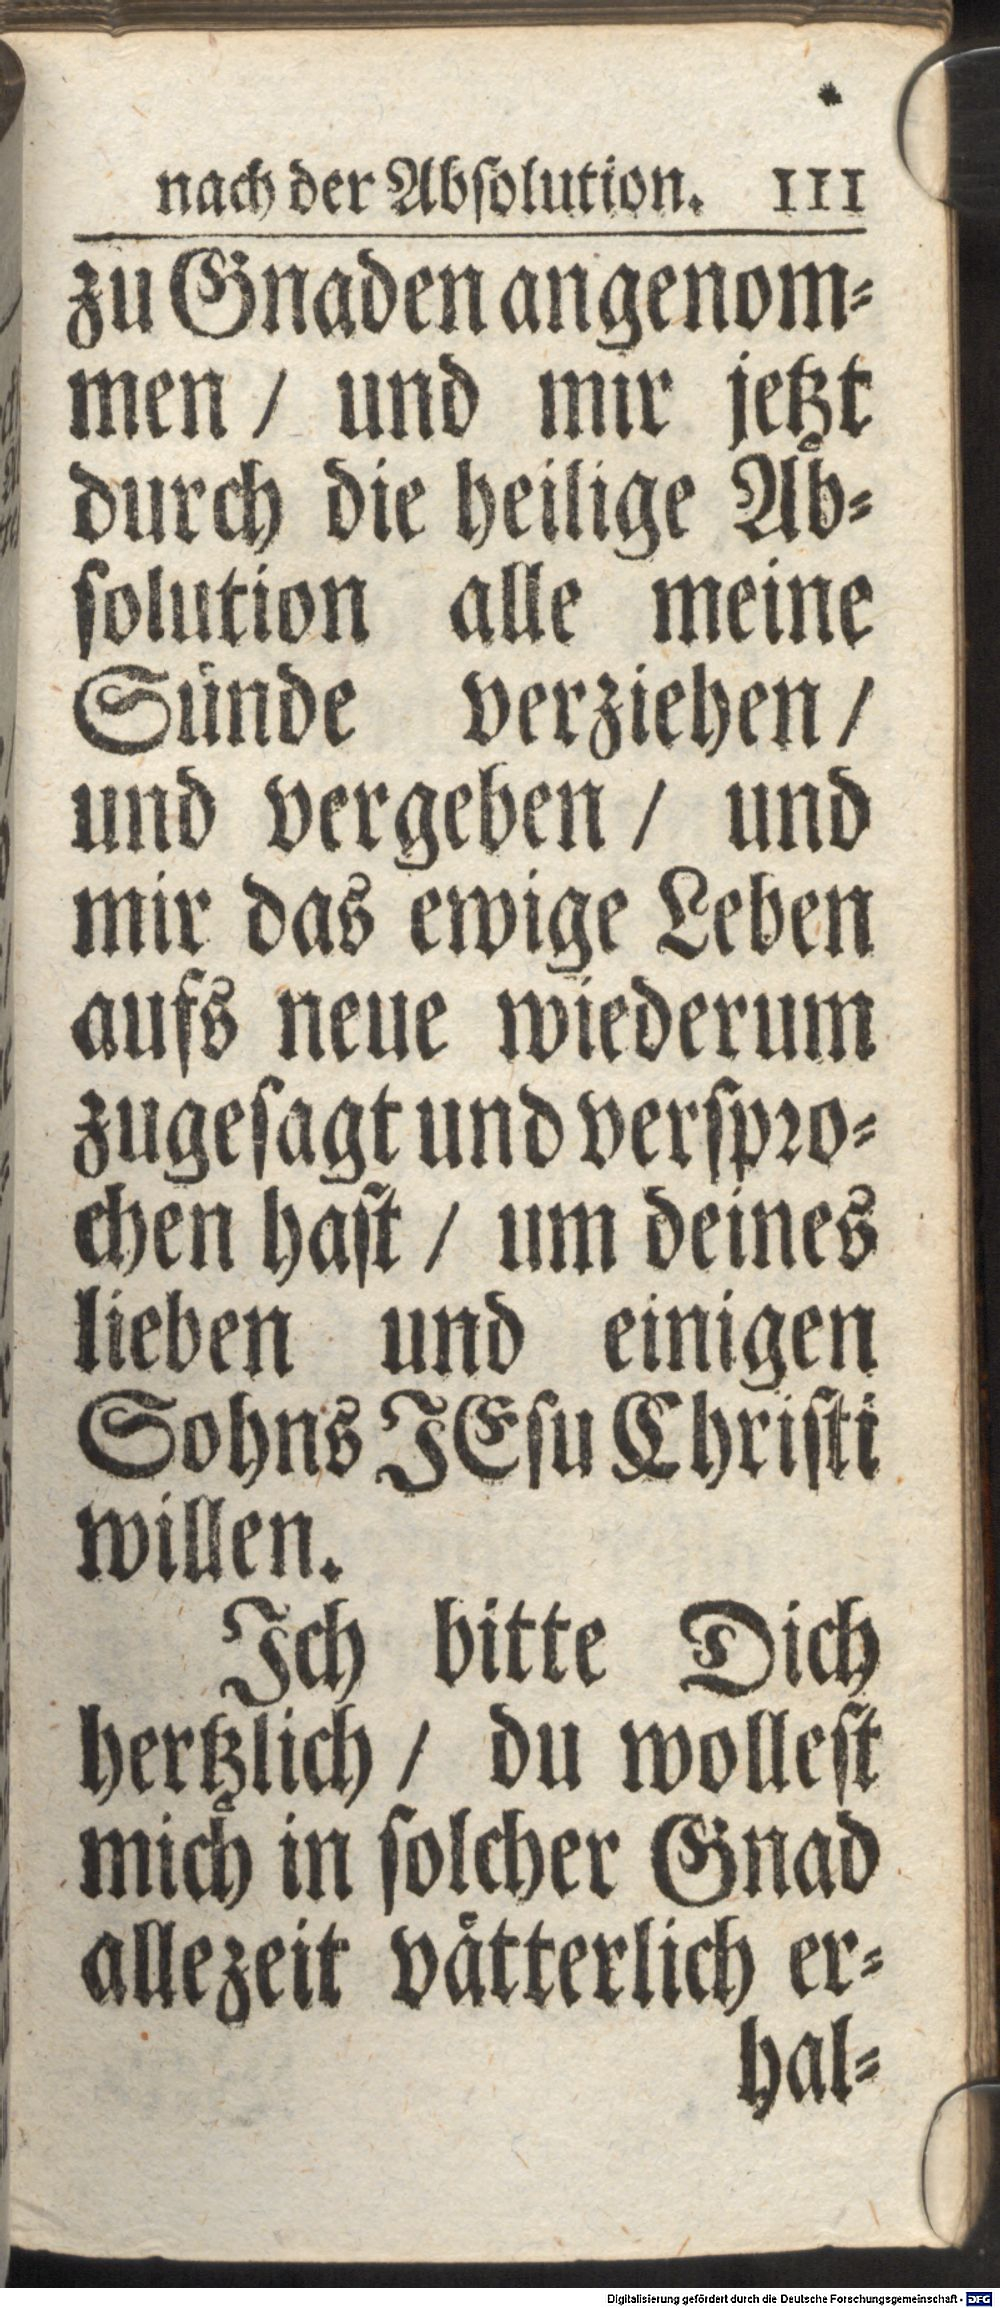 nach der Absolution. 111
zu Gnaden angenom⸗
men / und mir jetzt
durch die heilige Ab⸗
solution alle meine
Sünde verziehen /
und vergeben / und
mir das ewige Leben
aufs neue wiederum
zugesagt und verspro⸗
chen hast / um deines
lieben und einigen
Sohns JEsu Christi
willen.
Ich bitte Dich
hertzlich / du wollest
mich in solcher Gnad
allezeit vätterlich er⸗
hal⸗
Digitalisierung gefördert durch die Deutsche Forschungsgemeinschaft - DFG